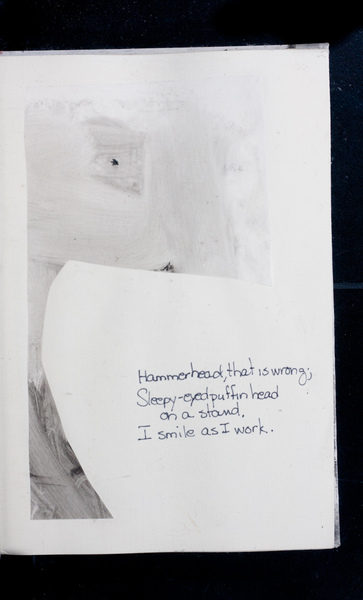 Hammerhead, that is wrong;
Sleepy-eyed puffin head
on a stand.
I smile as I work.